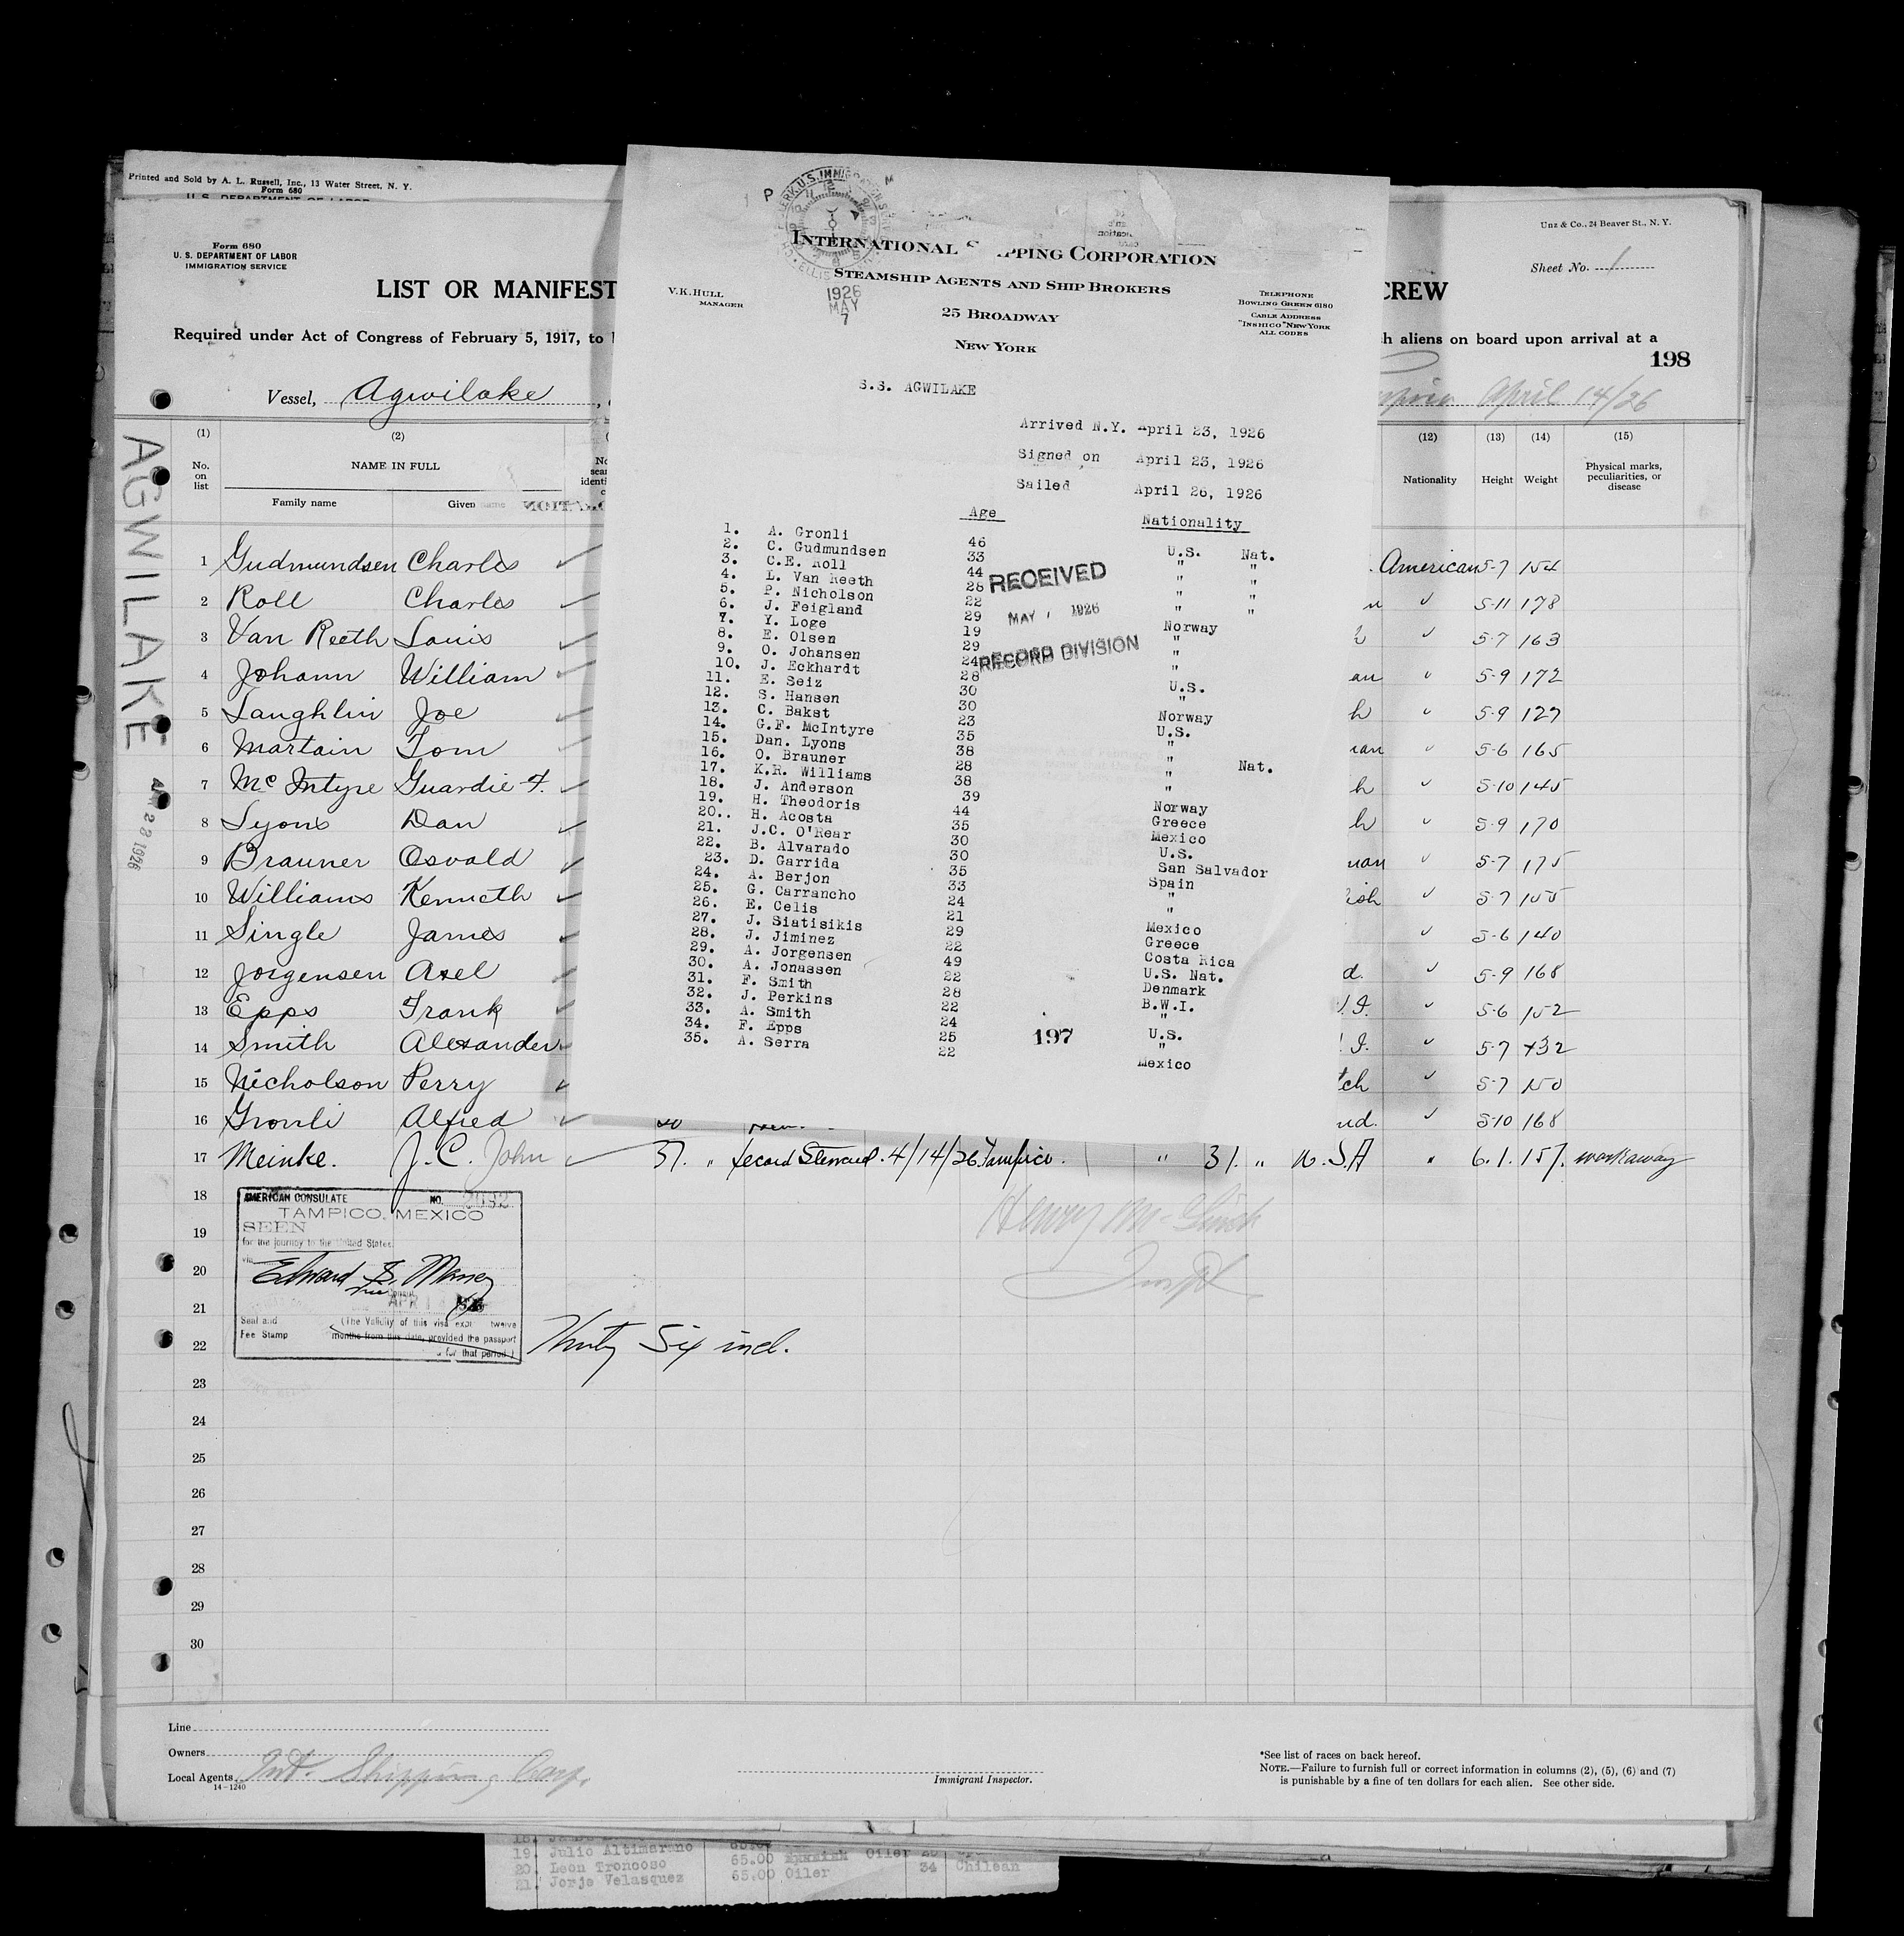 Printed and Sold by A. L. Russell, Inc., 13 Water Street, N. Y.
Form 680
U. S. DEPARTMENT OF LABOR
Form 680
U. S. DEPARTMENT OF LABOR
IMMIGRATION SERVICE
Unz & Co., 24 Beaver St., N. Y.
Sheet No. 1
LIST OR MANIFEST
CREW
Required under Act of Congress of February 5, 1917, to
aliens on board upon arrival at a
198
Vessel, Agwilake
April 14/26
AGWILAKE
1926
(1) (2) (12) (13) (14) (15)
No. on list
NAME IN FULL
Family name Given name
Nationality Height Weight Physical marks, peculiarities, or disease
1 Gudmundsen Charles American 5-7 154
2 Roll Charles 5-11 178
3 Van Reeth Louis 5-7 163
4 Johann William 5-9 172
5 Laughlin Joe 5-9 127
6 Martain Tom 5-6 165
7 McIntyre Guardie F. 5-10 145
8 Lyons Dan 5-9 170
9 Brauner Osvald 5-7 175
10 Williams Kenneth 5-7 155
11 Single James 5-6 140
12 Jorgensen Axel 5-9 168
13 Epps Frank 5-6 152
14 Smith Alexander 5-7 132
15 Nicholson Perry 5-7 150
16 Gronli Alfred 5-10 168
17 Meinke. J. C. John 37. " Second Steward. 4/14/26 Tampico. " 31. " U.S.A " 6.1. 157. workaway
18
19
20
21
22
23
24
25
26
27
28
29
30
AMERICAN CONSULATE NO. 2692
TAMPICO, MEXICO
SEEN
for the journey to the United States
via
Edward S. Maney
Vice Consul
APR 1926
Seal and Fee Stamp
(The Validity of this visa expires twelve
months from this date, provided the passport
for that period)
Thirty Six incl.
Henry
Line
Owners
Local Agents, Int. Shipping Corp.
14-1240
Immigrant Inspector.
*See list of races on back hereof.
NOTE.—Failure to furnish full or correct information in columns (2), (5), (6) and (7)
is punishable by a fine of ten dollars for each alien. See other side.
INTERNATIONAL SHIPPING CORPORATION
STEAMSHIP AGENTS AND SHIP BROKERS
25 BROADWAY
NEW YORK
V. K. HULL
MANAGER
TELEPHONE
BOWLING GREEN 6180
CABLE ADDRESS
"INSHICO" NEW YORK
ALL CODES
1926
MAY
7
S.S. AGWILAKE
Arrived N.Y. April 23, 1926
Signed on April 23, 1926
Sailed April 26, 1926
Age Nationality
1. A. Gronli 46 U.S. Nat.
2. C. Gudmundsen 33 " "
3. C.E. Roll 44 " "
4. L. Van Reeth 28 " "
5. P. Nicholson 22 "
6. J. Feigland 29 Norway
7. Y. Loge 19 "
8. E. Olsen 29 "
9. O. Johansen 24 "
10. J. Eckhardt 28 U.S.
11. E. Seiz 30 "
12. S. Hansen 30 Norway
13. C. Bakst 23 U.S.
14. G.F. McIntyre 35 "
15. Dan. Lyons 38 "
16. O. Brauner 28 " Nat.
17. K.R. Williams 38 "
18. J. Anderson 39 Norway
19. H. Theodoris 44 Greece
20.. H. Acosta 35 Mexico
21. J.C. O'Rear 30 U.S.
22. B. Alvarado 30 San Salvador
23. D. Garrida 35 Spain
24. A. Berjon 33 "
25. G. Carrancho 24 "
26. E. Celis 21 Mexico
27. J. Siatisikis 29 Greece
28. J. Jiminez 22 Costa Rica
29. A. Jorgensen 49 U.S. Nat.
30. A. Jonassen 22 Denmark
31. F. Smith 28 B.W.I.
32. J. Perkins 22 "
33. A. Smith 24 U.S.
34. F. Epps 25 "
35. A. Serra 22 Mexico
RECEIVED
MAY 1926
RECORD DIVISION
197
19. Julio Altimarano 65.00 Oiler
20. Leon Troncoso 65.00 Oiler 34 Chilean
21. Jorje Velasquez 65.00 Oiler